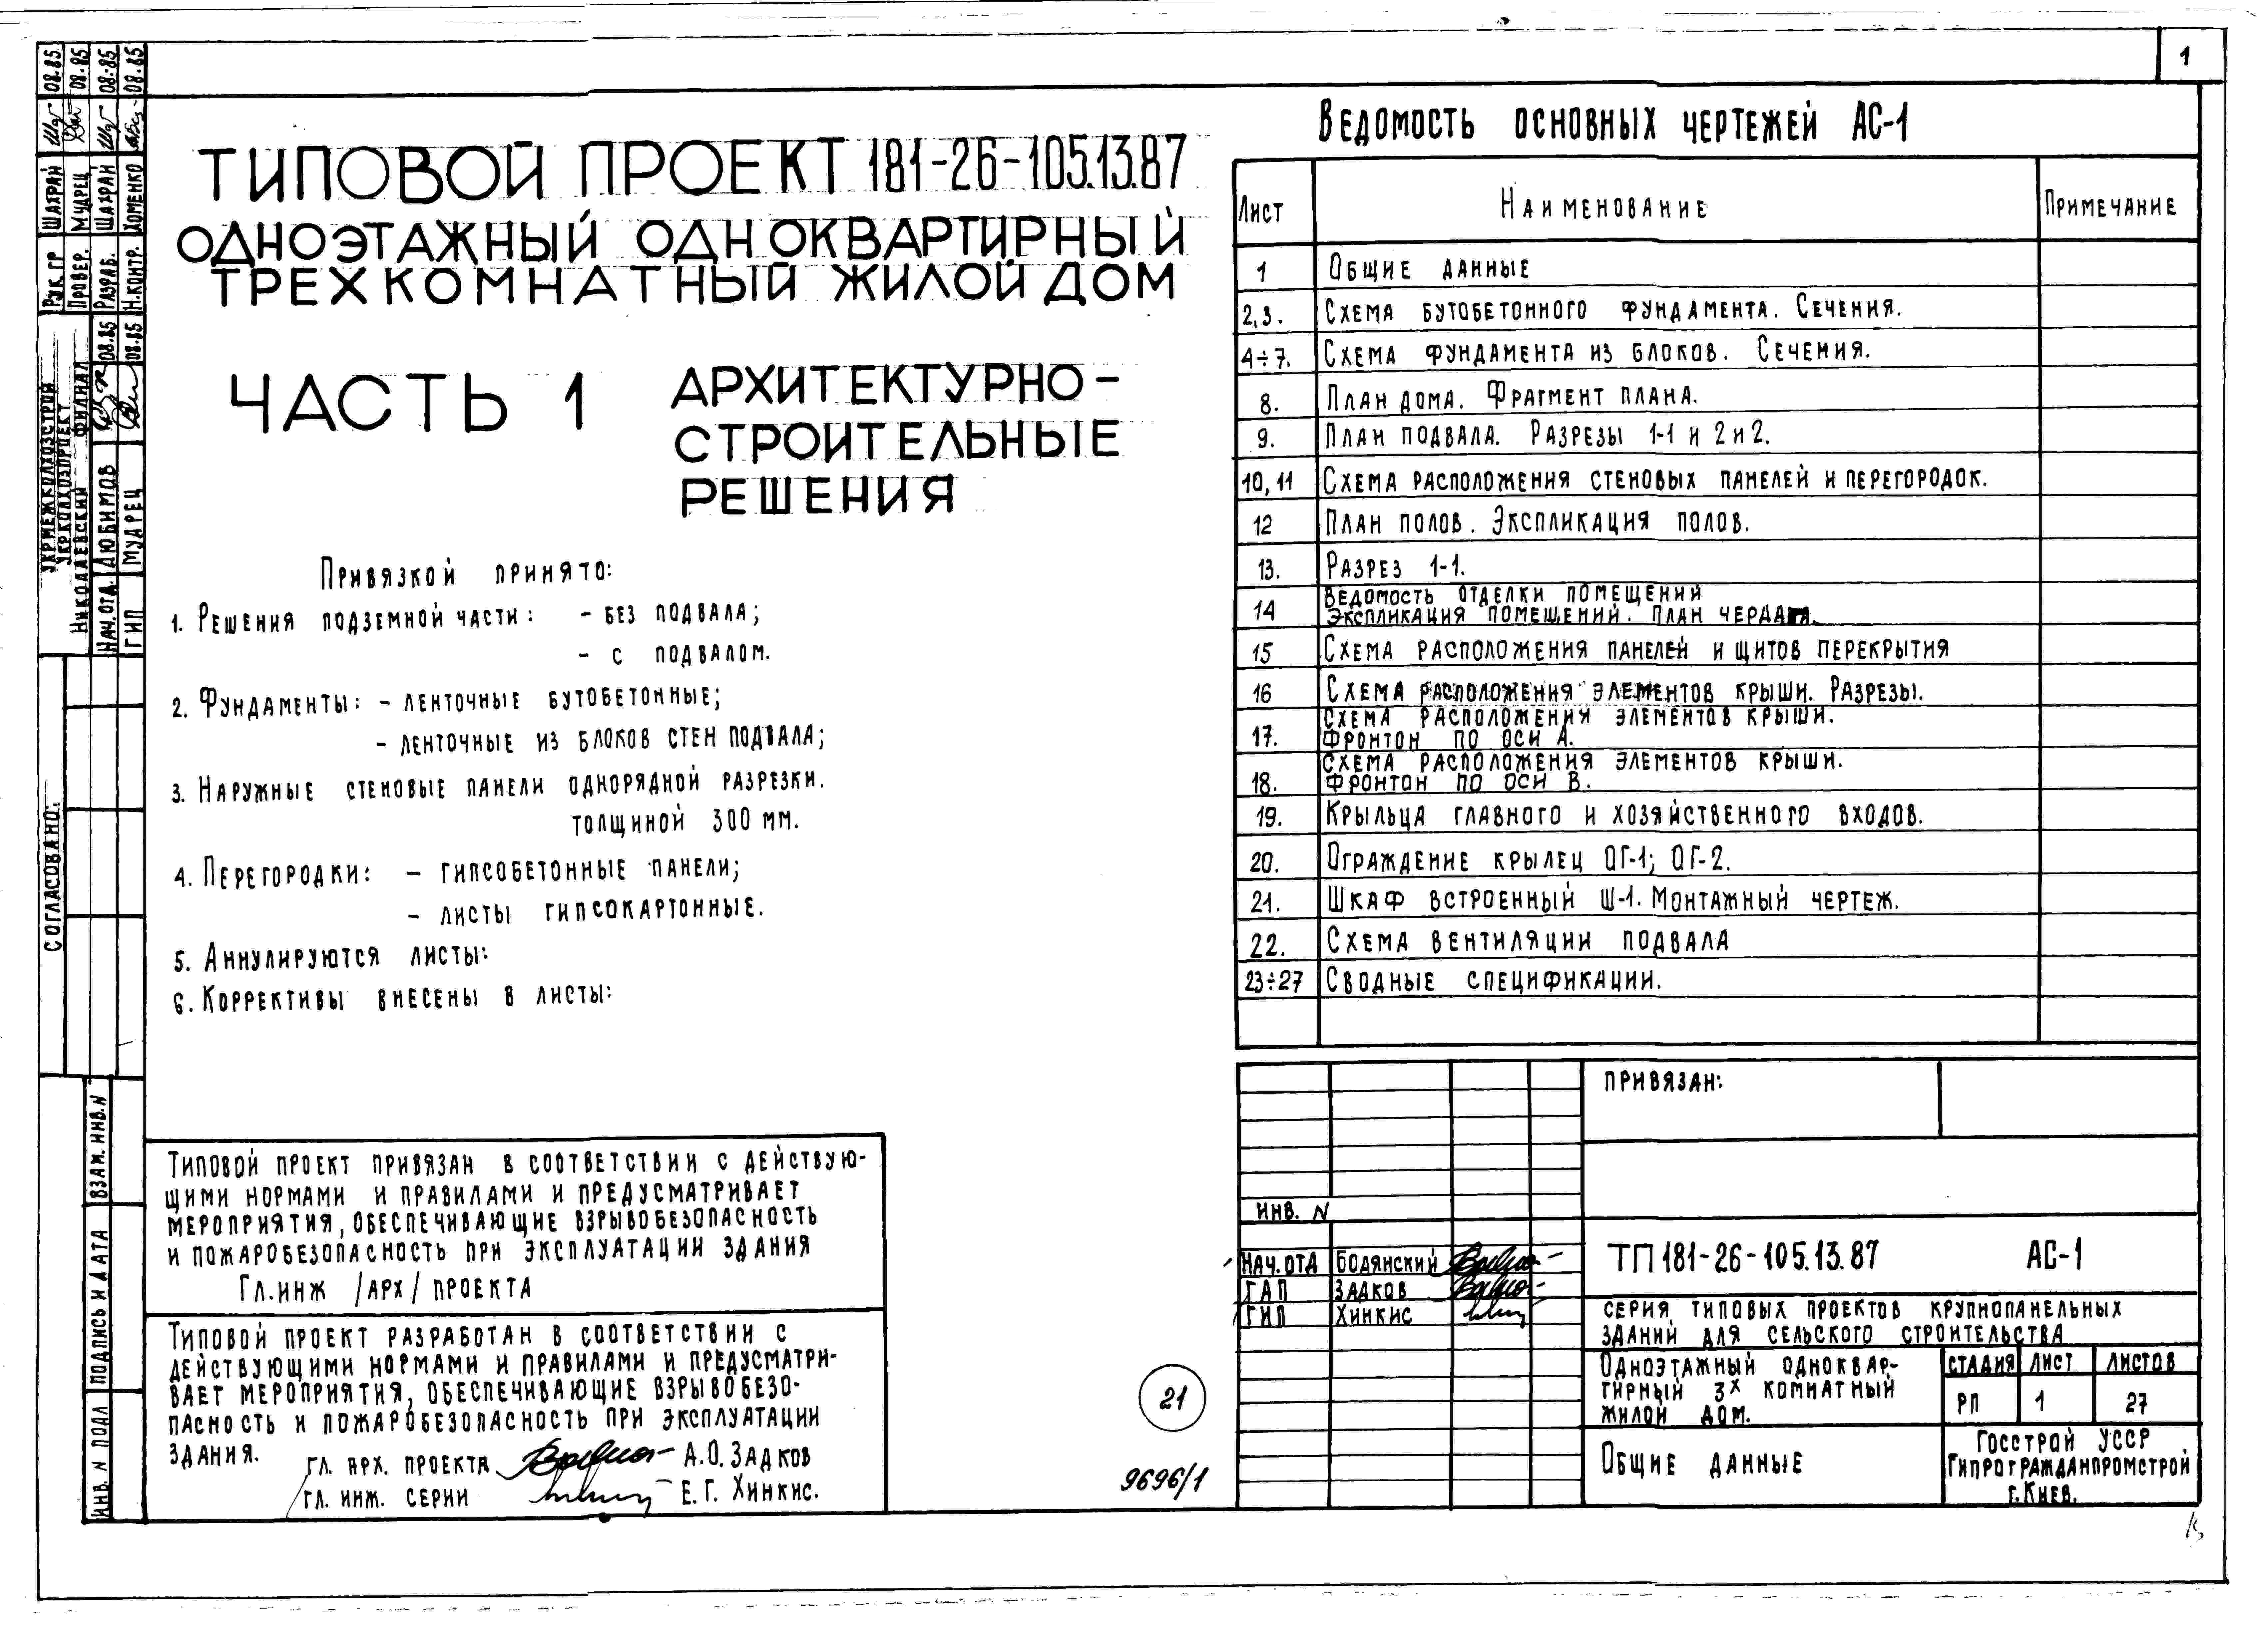 1
ТИПОВОЙ ПРОЕКТ 181-26-105.13.87
ОДНОЭТАЖНЫЙ ОДНОКВАРТИРНЫЙ
ТРЕХКОМНАТНЫЙ ЖИЛОЙ ДОМ
ЧАСТЬ 1 АРХИТЕКТУРНО-
СТРОИТЕЛЬНЫЕ
РЕШЕНИЯ
Привязкой принято:
1. Решения подземной части: - без подвала;
- с подвалом.
2. Фундаменты: - ленточные бутобетонные;
- ленточные из блоков стен подвала;
3. Наружные стеновые панели однорядной разрезки.
толщиной 300 мм.
4. Перегородки: - гипсобетонные панели;
- листы гипсокартонные.
5. Аннулируются листы:
6. Коррективы внесены в листы:
Типовой проект привязан в соответствии с действую-
щими нормами и правилами и предусматривает
мероприятия, обеспечивающие взрывобезопасность
и пожаробезопасность при эксплуатации здания
Гл. инж /арх/ проекта
Типовой проект разработан в соответствии с
действующими нормами и правилами и предусматри-
вает мероприятия, обеспечивающие взрывобезо-
пасность и пожаробезопасность при эксплуатации
здания.
гл. арх. проекта А.О. Задков
гл. инж. серии Е.Г. Хинкис.
21
9696/1
Ведомость основных чертежей АС-1
Лист Наименование Примечание
1 Общие данные
2,3. Схема бутобетонного фундамента. Сечения.
4÷7. Схема фундамента из блоков. Сечения.
8. План дома. Фрагмент плана.
9. План подвала. Разрезы 1-1 и 2и2.
10, 11 Схема расположения стеновых панелей и перегородок.
12 План полов. Экспликация полов.
13. Разрез 1-1.
14 Ведомость отделки помещений
Экспликация помещений. План
15 Схема расположения панелей и щитов перекрытия
16 Схема расположения элементов крыши. Разрезы.
17. Схема расположения элементов крыши.
Фронтон по оси А.
18. Схема расположения элементов крыши.
Фронтон по оси В.
19. Крыльца главного и хозяйственного входов.
20. Ограждение крылец ОГ-1; ОГ-2.
21. Шкаф встроенный Ш-1. Монтажный чертеж.
22. Схема вентиляции подвала
23÷27 Сводные спецификации.
Привязан:
Инв. N
Нач. отд Бодянский
ГАП Задков
ГИП Хинкис
ТП 181-26-105.13.87 АС-1
Серия типовых проектов крупнопанельных
зданий для сельского строительства
Одноэтажный одноквар-
тирный 3х комнатный
жилой дом.
Стадия Лист Листов
РП 1 27
Общие данные
Госстрой УССР
Гипрогражданпромстрой
г. Киев.
Рук. гр Шахрай 08.85
Провер. Мудрец 08.85
Разраб. Шахрай 08.85
Н.контр. Хоменко 08.85
Укрмежколхозстрой
Укрколхозпроект
Николаевский филиал
Нач. отд. Любимов 08.85
ГИП 08.85
Согласовано:
Взам. инв. N
Подпись и дата
Инв. N подл